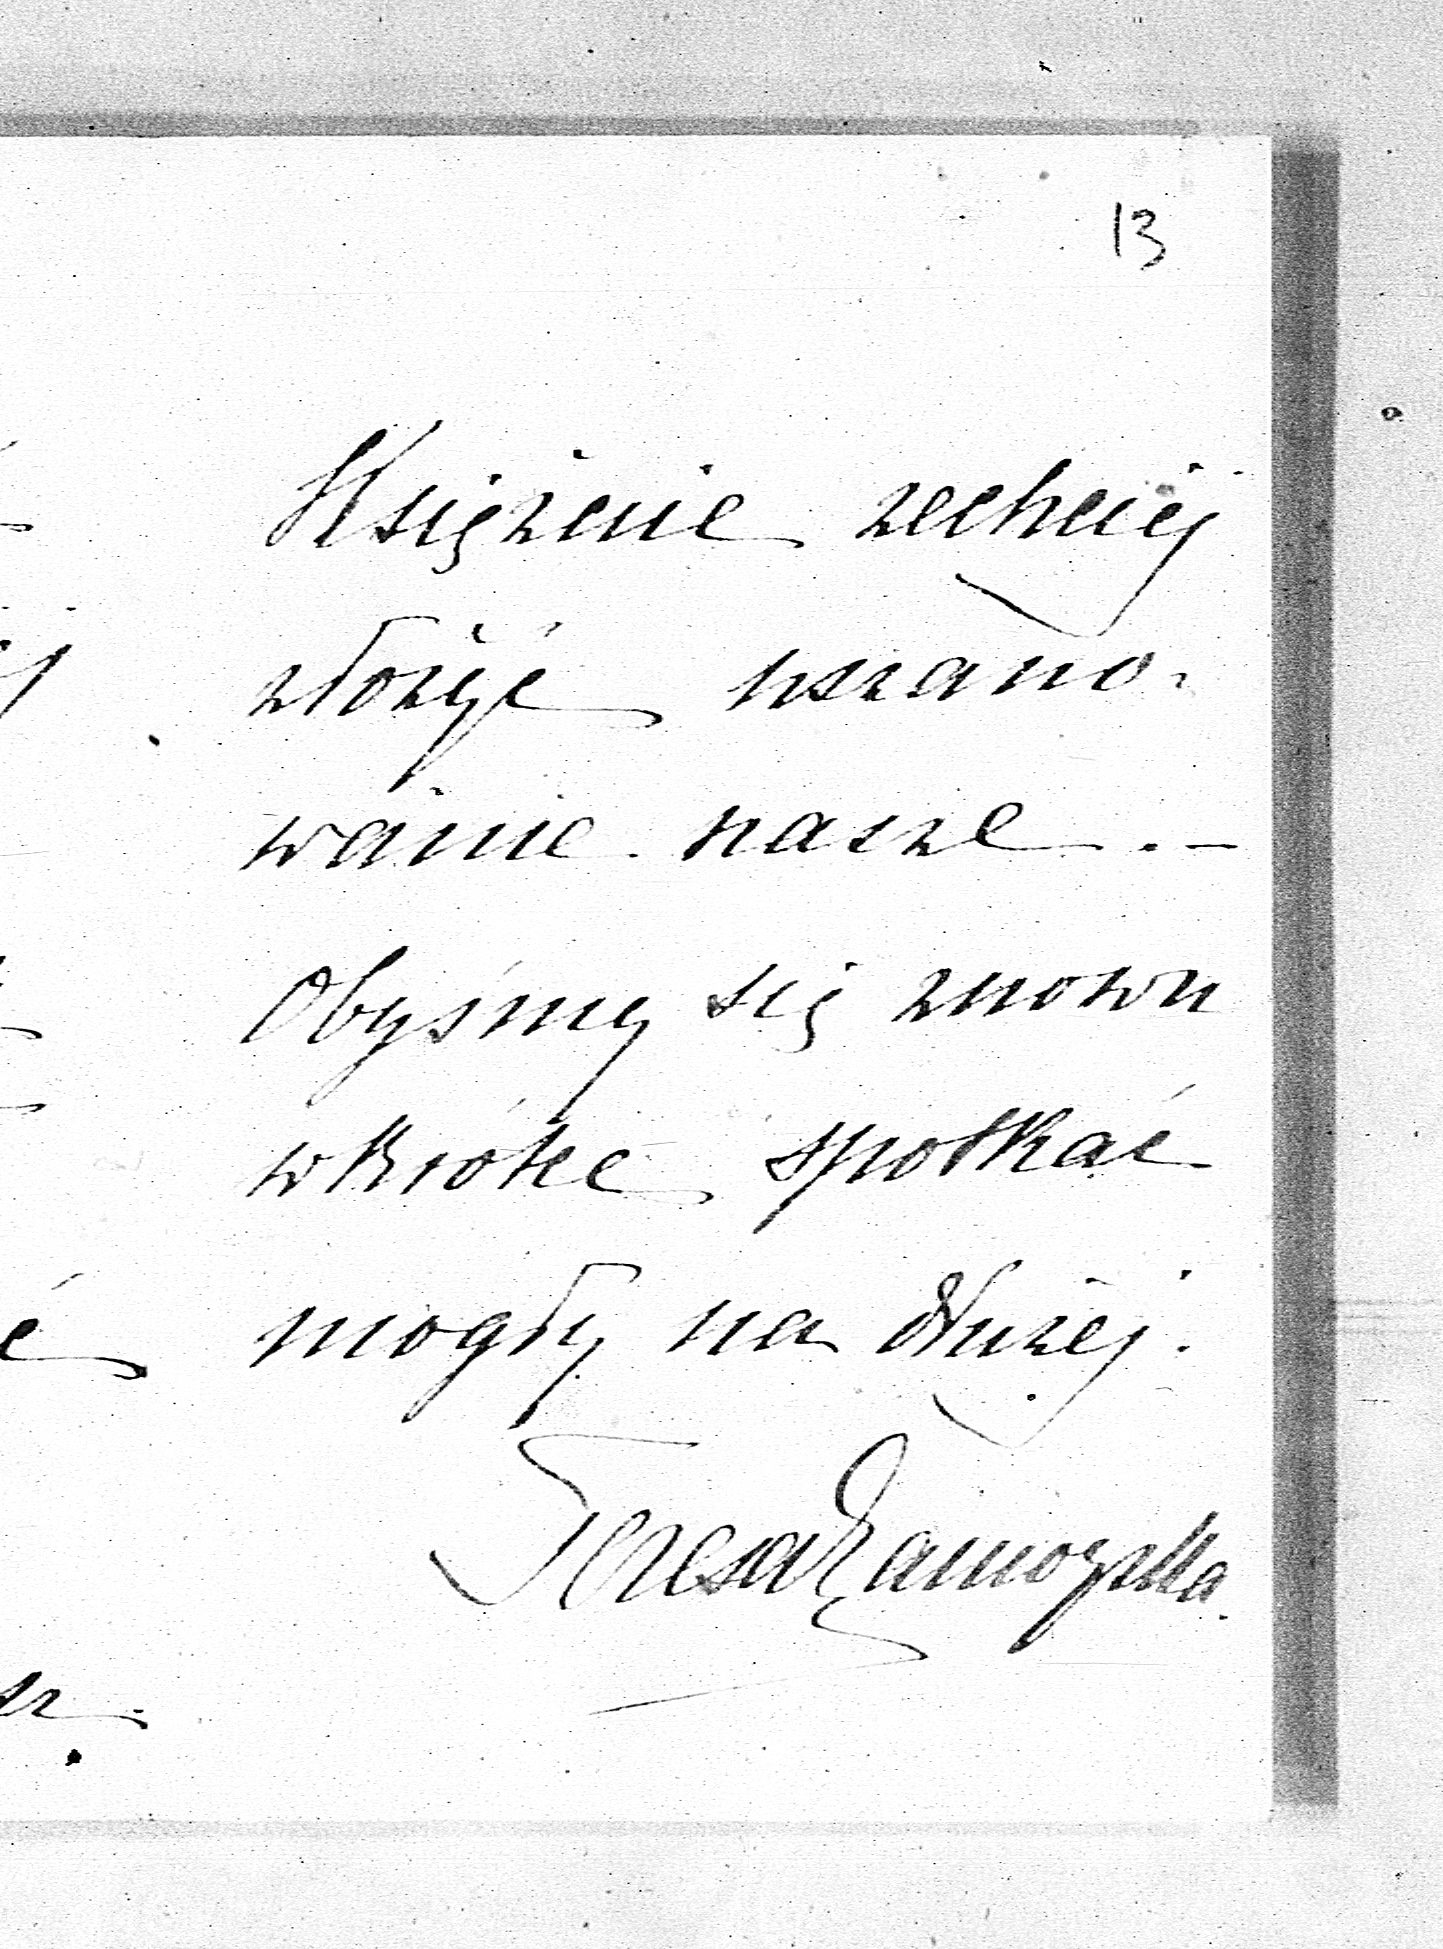 13
Księżnie zechciej
złożyć uszano-
wanie nasze.-
Obyśmy się znowu
wkrótce spotkać
mogły na dłużej.
Teresa Zamoyska.